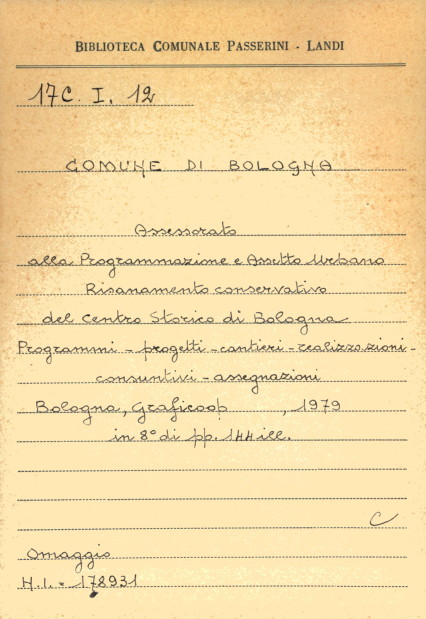 BIBLIOTECA COMUNALE PASSERINI - LANDI
17C. I. 12
COMUNE DI BOLOGNA
Assessorato
alla Programmazione e Assetto Urbano
Risanamento conservativo
del Centro Storico di Bologna
Programmi - progetti - cantieri - realizzazioni -
consuntivi - assegnazioni
Bologna, Graficoop , 1979
in 8° di pp. 144 ill.
C
Omaggio
H.I. - 178931